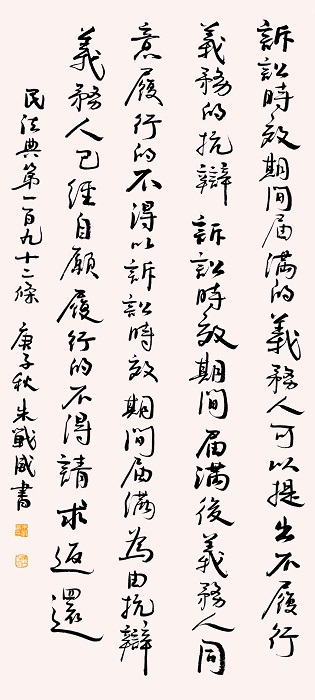 訴訟時效期间屆满的義務人可以提出不履行
義務的抗辯訴訟時效期间屆满後義務人同
意履行的不得以訴訟時效期间屆满為由抗辯
義務人已經自願履行的不得請求返還
民法典第一百九十二條 庚子秋朱戰威書